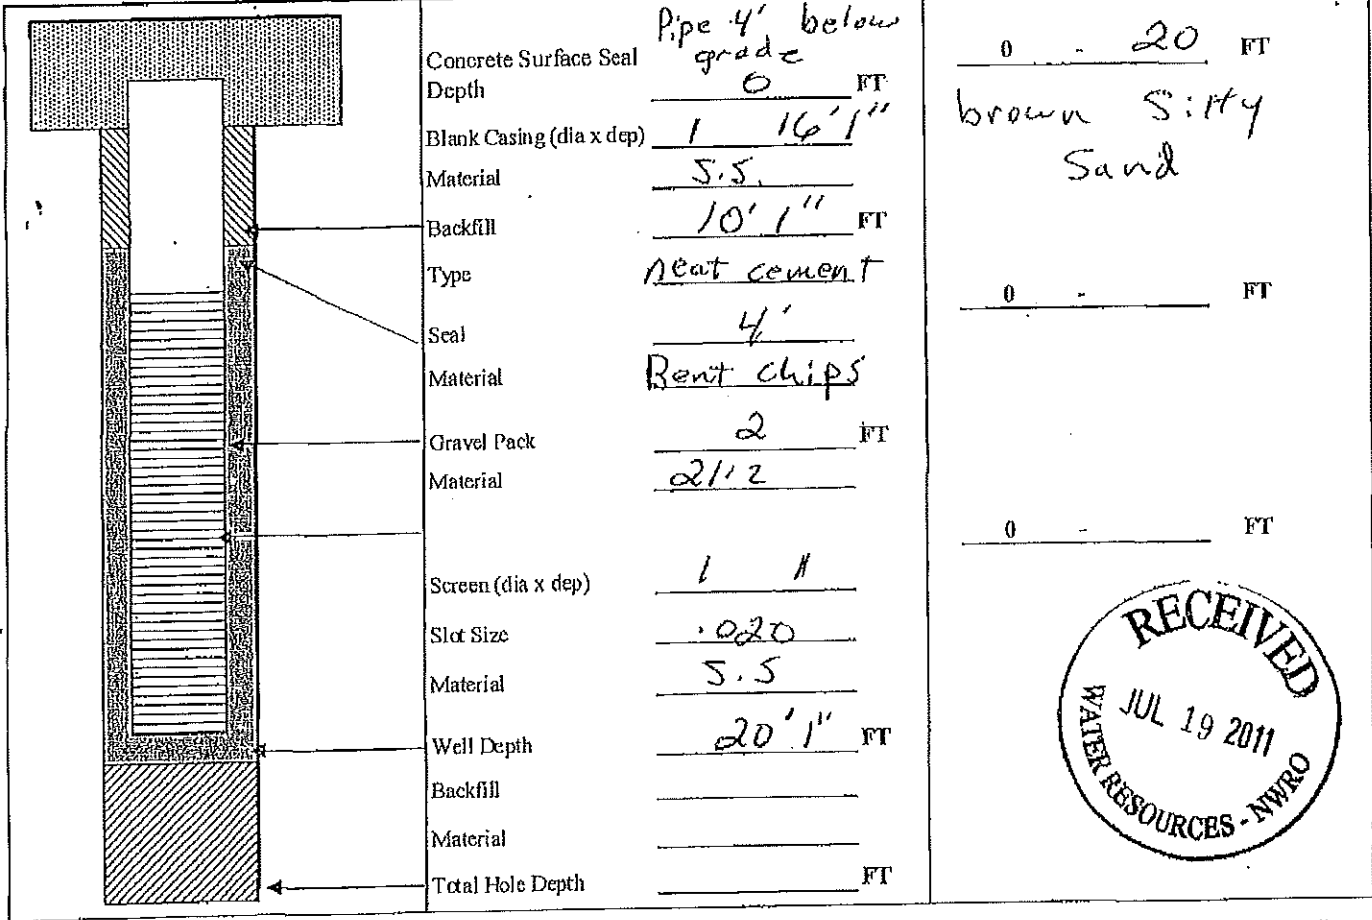 Pipe 4' below
grade
Concrete Surface Seal
Depth 0 FT
Blank Casing (dia x dep) 1 16'1"
Material S.S.
Backfill 10' 1" FT
Type neat cement
Seal 4'
Material Bent chips
Gravel Pack 2 FT
Material 2/12
Screen (dia x dep) 1
Slot Size .020
Material S.S
Well Depth 20'1" FT
Backfill
Material
Total Hole Depth FT
0 - 20 FT
brown Silty
Sand
0 - FT
0 - FT
RECEIVED
JUL 19 2011
WATER RESOURCES - NWRO